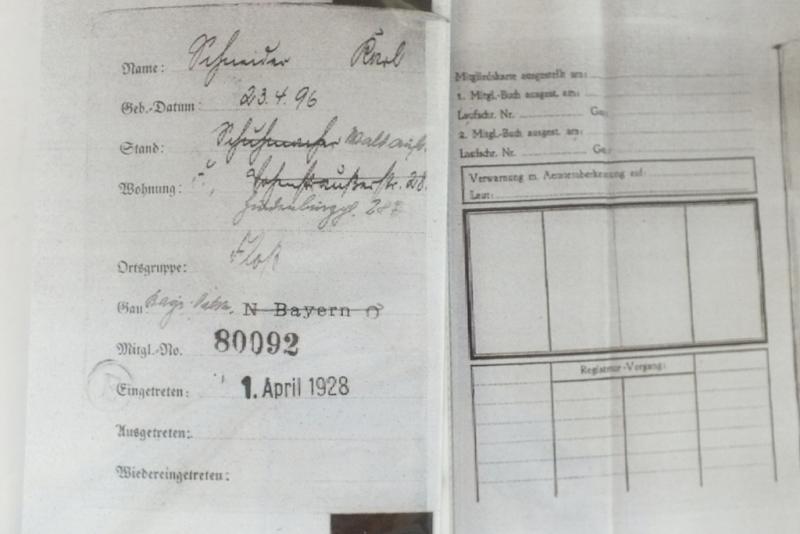 Name: Schneider Karl
Geb.-Datum: 23.4.96
Stand: Schuhmacher Waldaufs.
Wohnung: str. 28.
Hindenburgpl.
Ortsgruppe: Floß
Gau N Bayern
Mitgl.-No. 80092
Eingetreten: 1. April 1928
Ausgetreten:
Wiedereingetreten:
Mitgliedskarte ausgestellt am:
1. Mitgl.-Buch ausgest. am:
Laufschr. Nr. Ge
2. Mitgl.-Buch ausgest. am:
Laufschr. Nr. Ge
Verwarnung m. Aemteraberkennung auf:
Laut:
Registratur-Vorgang: